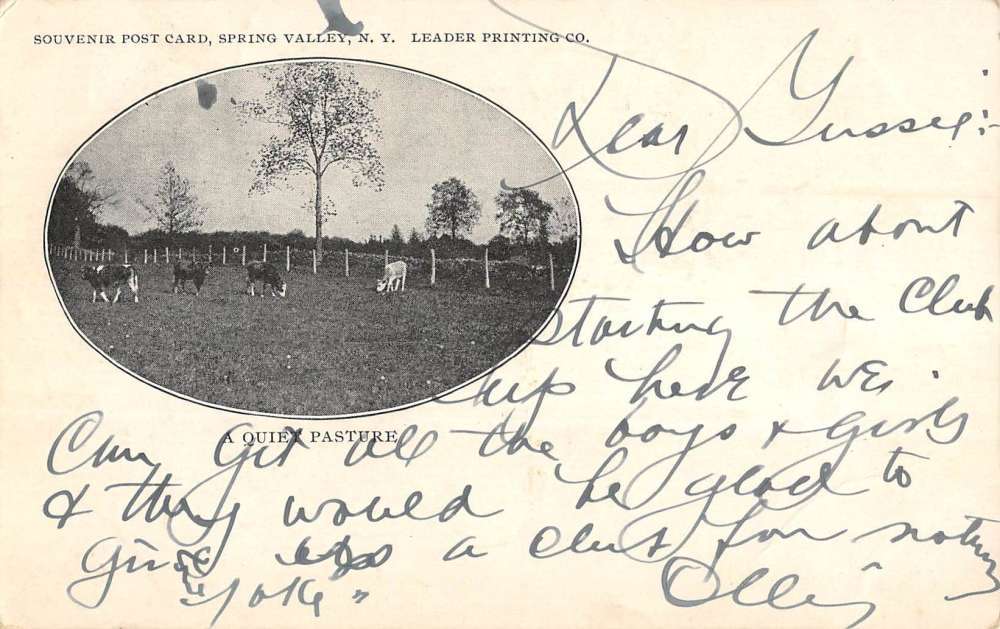 SOUVENIR POST CARD, SPRING VALLEY, N. Y. LEADER PRINTING CO.
Dear Gussie:-
How about
starting the Club
up here we
Can get all the boys & girls
& they would be glad to
give us a club for nothing
"joke" Ollie
A QUIET PASTURE